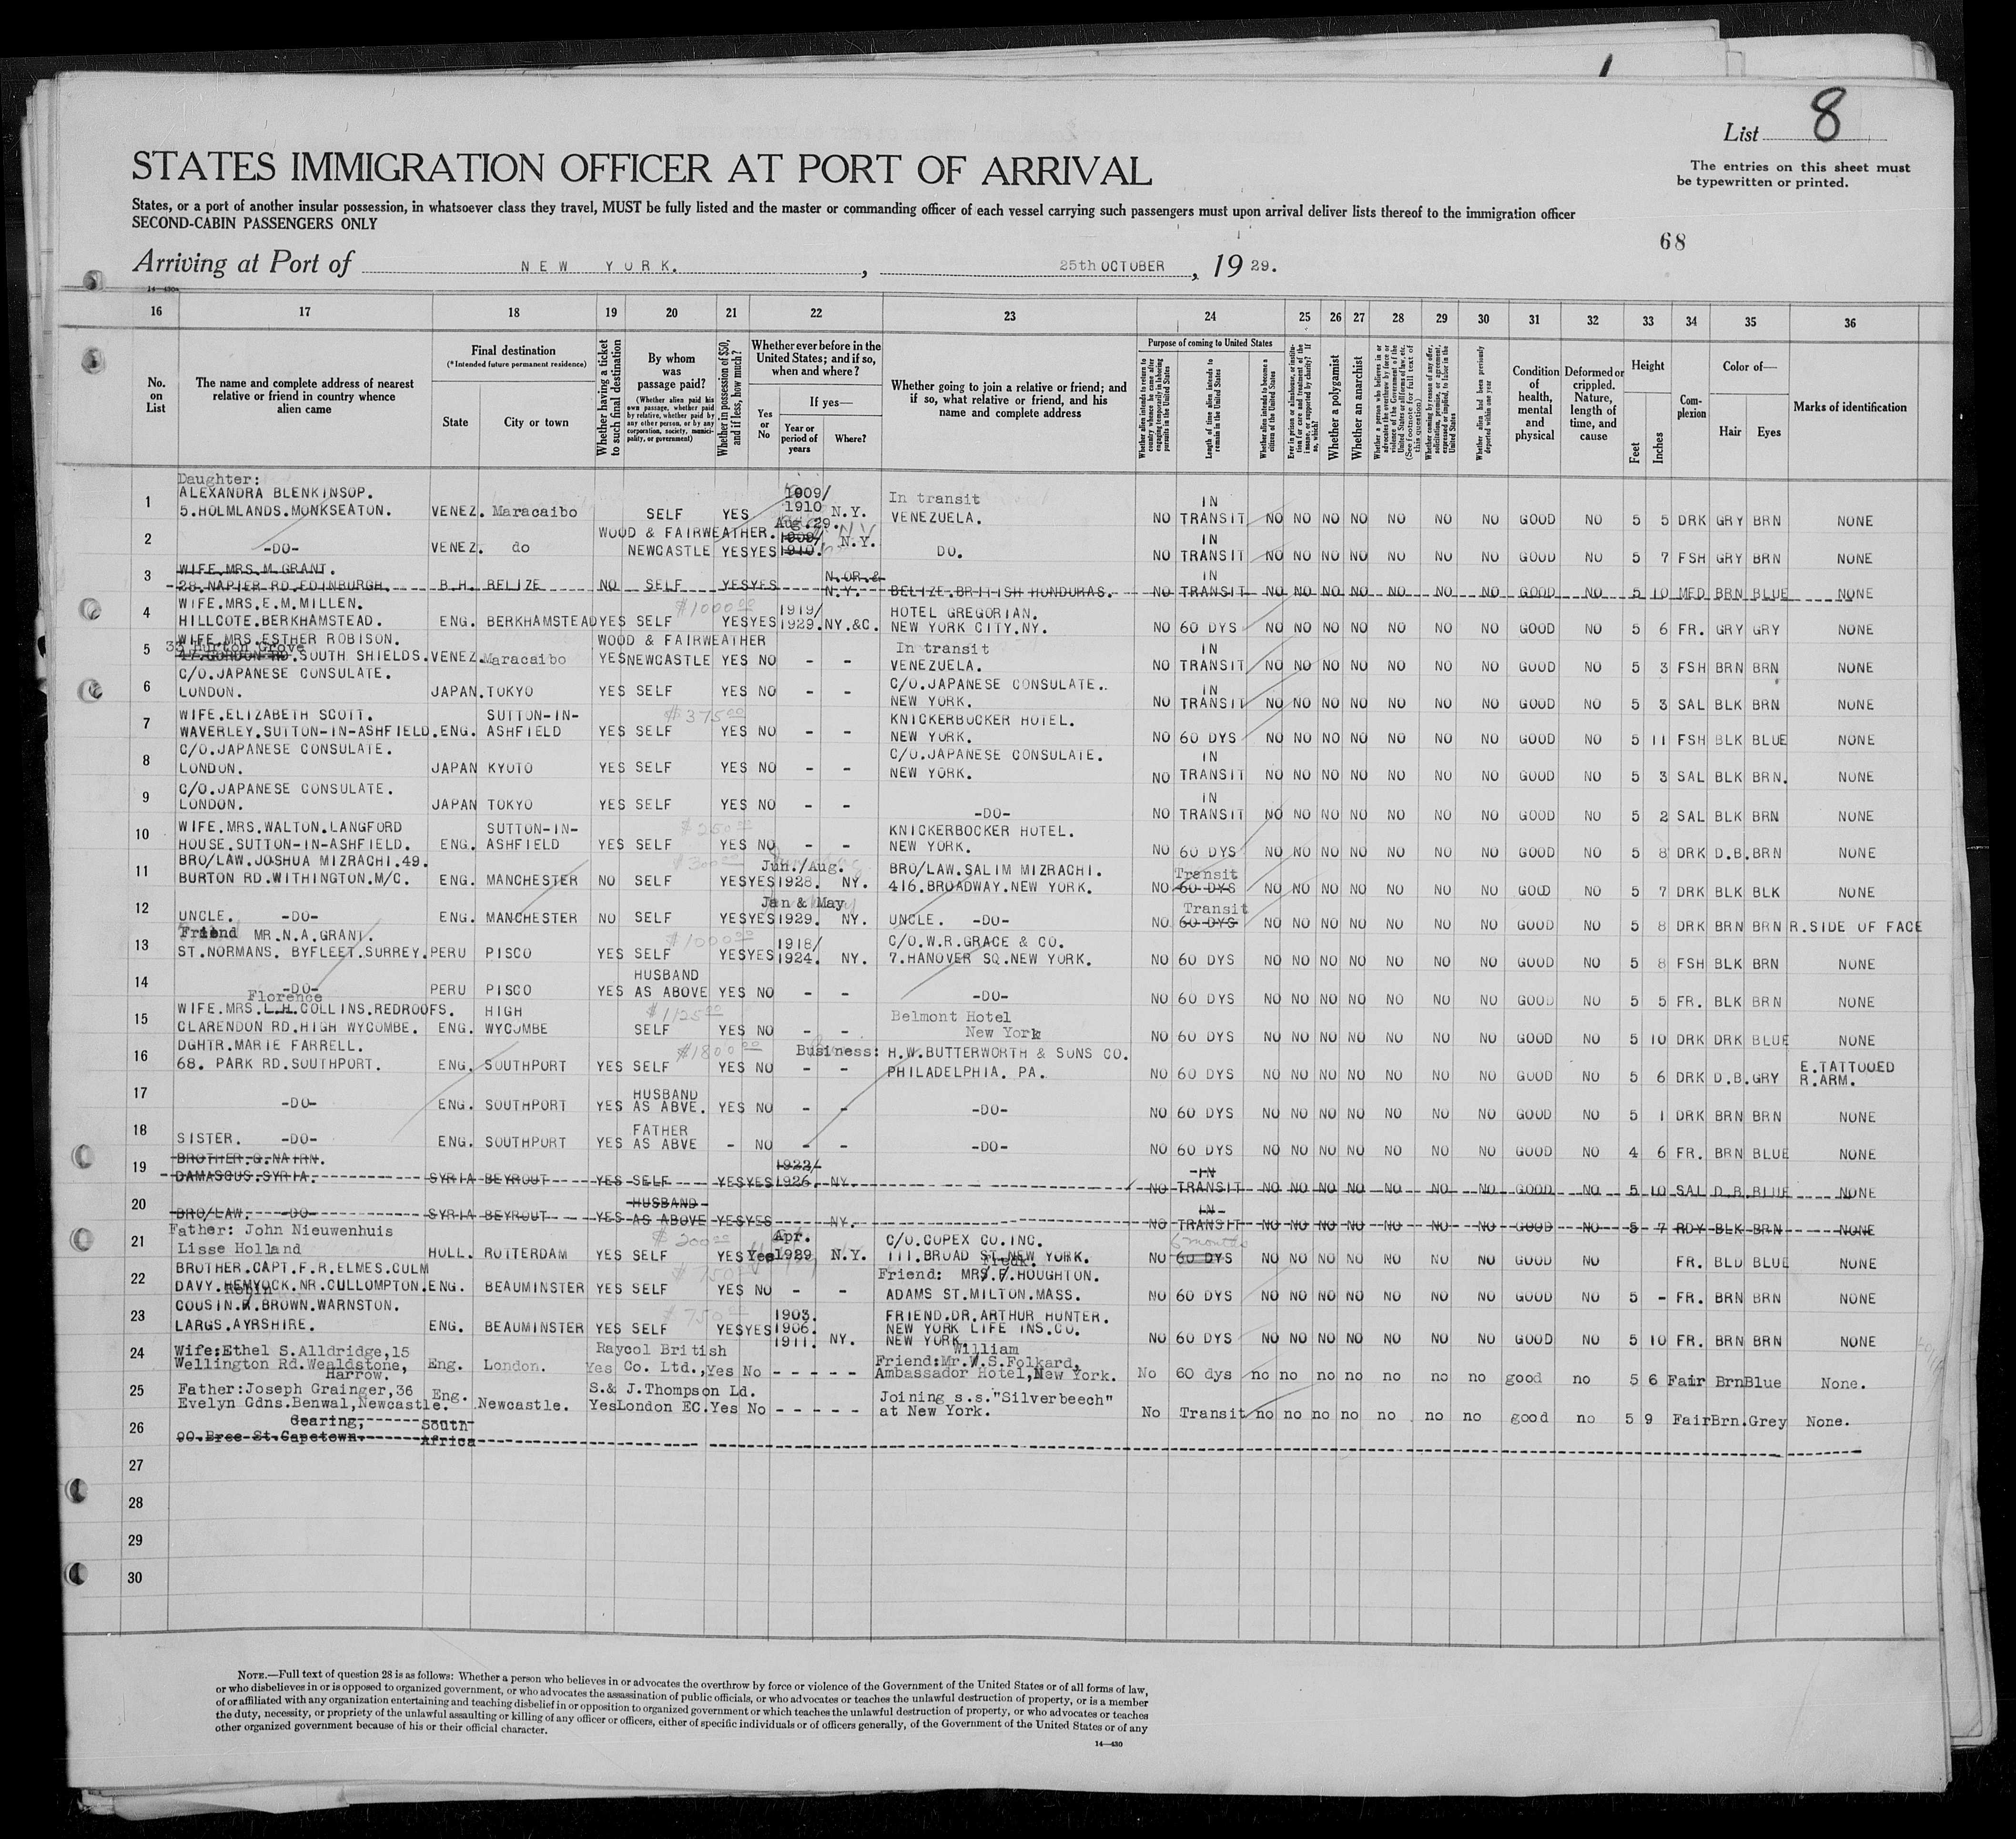 List 8
The entries on this sheet must
be typewritten or printed.
STATES IMMIGRATION OFFICER AT PORT OF ARRIVAL
States, or a port of another insular possession, in whatsoever class they travel, MUST be fully listed and the master or commanding officer of each vessel carrying such passengers must upon arrival deliver lists thereof to the immigration officer
SECOND-CABIN PASSENGERS ONLY
68
Arriving at Port of NEW YORK. , 25th OCTOBER , 19 29.
14—430a
16 17 18 19 20 21 22 23 24 25 26 27 28 29 30 31 32 33 34 35 36
No. on List
The name and complete address of nearest relative or friend in country whence alien came
Final destination
(*Intended future permanent residence)
State City or town
Whether having a ticket to such final destination
By whom was passage paid?
(Whether alien paid his own passage, whether paid by relative, whether paid by any other person, or by any corporation, society, municipality, or government)
Whether in possession of $50, and if less, how much?
Whether ever before in the United States; and if so, when and where?
Yes or No
If yes—
Year or period of years
Where?
Whether going to join a relative or friend; and if so, what relative or friend, and his name and complete address
Purpose of coming to United States
Whether alien intends to return to country whence he came after engaging temporarily in laboring pursuits in the United States
Length of time alien intends to remain in the United States
Whether alien intends to become a citizen of the United States
Ever in prison or almshouse, or institution for care and treatment of the insane, or supported by charity? If so, which?
Whether a polygamist
Whether an anarchist
Whether a person who believes in or advocates the overthrow by force or violence of the Government of the United States or all forms of law, etc. (See footnote for full text of this question)
Whether coming by reason of any offer, solicitation, promise, or agreement, expressed or implied, to labor in the United States
Whether alien had been previously deported within one year
Condition of health, mental and physical
Deformed or crippled. Nature, length of time, and cause
Height
Feet Inches
Complexion
Color of—
Hair Eyes
Marks of identification
Daughter:
1 ALEXANDRA BLENKINSOP. 1909/ In transit IN
5.HOLMLANDS.MONKSEATON. VENEZ. Maracaibo SELF YES 1910 N.Y. VENEZUELA. NO TRANSIT NO NO NO NO NO NO NO GOOD NO 5 5 DRK GRY BRN NONE
2 WOOD & FAIRWEATHER. Aug.29. 1909/ IN
-DO- VENEZ. do NEWCASTLE YES YES 1910. N.Y. DO. NO TRANSIT NO NO NO NO NO NO NO GOOD NO 5 7 FSH GRY BRN NONE
3 WIFE.MRS.M.GRANT. N.OR.& IN
28.NAPIER RD.EDINBURGH. B.H. BELIZE NO SELF YES YES N.Y. BELIZE.BRITISH HONDURAS. NO TRANSIT NO NO NO NO NO NO NO GOOD NO 5 10 MED BRN BLUE NONE
4 WIFE.MRS.E.M.MILLEN. $1000.00 1919/ HOTEL GREGORIAN.
HILLCOTE.BERKHAMSTEAD. ENG. BERKHAMSTEAD YES SELF YES YES 1929. NY.&C. NEW YORK CITY.NY. NO 60 DYS NO NO NO NO NO NO NO GOOD NO 5 6 FR. GRY GRY NONE
5 WIFE.MRS.ESTHER ROBISON. WOOD & FAIRWEATHER In transit IN
33 Burton Grove
47.GORDON RD.SOUTH SHIELDS. VENEZ. Maracaibo YES NEWCASTLE YES NO - - VENEZUELA. NO TRANSIT NO NO NO NO NO NO NO GOOD NO 5 3 FSH BRN BRN NONE
6 C/O.JAPANESE CONSULATE. C/O.JAPANESE CONSULATE. IN
LONDON. JAPAN. TOKYO YES SELF YES NO - - NEW YORK. NO TRANSIT NO NO NO NO NO NO NO GOOD NO 5 3 SAL BLK BRN NONE
7 WIFE.ELIZABETH SCOTT. SUTTON-IN- $375.00 KNICKERBOCKER HOTEL.
WAVERLEY.SUTTON-IN-ASHFIELD. ENG. ASHFIELD YES SELF YES NO - - NEW YORK. NO 60 DYS NO NO NO NO NO NO NO GOOD NO 5 11 FSH BLK BLUE NONE
8 C/O.JAPANESE CONSULATE. C/O.JAPANESE CONSULATE. IN
LONDON. JAPAN KYOTO YES SELF YES NO - - NEW YORK. NO TRANSIT NO NO NO NO NO NO NO GOOD NO 5 3 SAL BLK BRN. NONE
9 C/O.JAPANESE CONSULATE. IN
LONDON. JAPAN TOKYO YES SELF YES NO - - -DO- NO TRANSIT NO NO NO NO NO NO NO GOOD NO 5 2 SAL BLK BRN NONE
10 WIFE.MRS.WALTON.LANGFORD SUTTON-IN- $250.00 KNICKERBOCKER HOTEL.
HOUSE.SUTTON-IN-ASHFIELD. ENG. ASHFIELD YES SELF YES NO - - NEW YORK. NO 60 DYS NO NO NO NO NO NO NO GOOD NO 5 8 DRK D.B. BRN NONE
11 BRO/LAW.JOSHUA MIZRACHI.49. $300.00 Jun./Aug. BRO/LAW.SALIM MIZRACHI. Transit
BURTON RD.WITHINGTON.M/C. ENG. MANCHESTER NO SELF YES YES 1928. NY. 416.BROADWAY.NEW YORK. NO 60 DYS NO NO NO NO NO NO NO GOOD NO 5 7 DRK BLK BLK NONE
12 Jan & May Transit
UNCLE. -DO- ENG. MANCHESTER NO SELF YES YES 1929. NY. UNCLE. -DO- NO 60 DYS NO NO NO NO NO NO NO GOOD NO 5 8 DRK BRN BRN R.SIDE OF FACE
13 Friend MR.N.A.GRANT. $1000.00 1918/ C/O.W.R.GRACE & CO.
ST.NORMANS. BYFLEET.SURREY. PERU PISCO YES SELF YES YES 1924. NY. 7.HANOVER SQ.NEW YORK. NO 60 DYS NO NO NO NO NO NO NO GOOD NO 5 8 FSH BLK BRN NONE
14 HUSBAND
-DO- PERU PISCO YES AS ABOVE YES NO - - -DO- NO 60 DYS NO NO NO NO NO NO NO GOOD NO 5 5 FR. BLK BRN NONE
Florence
15 WIFE.MRS.L.H.COLLINS.REDROOFS. HIGH $1125.00 Belmont Hotel
CLARENDON RD.HIGH WYCOMBE. ENG. WYCOMBE SELF YES NO - - New York NO 60 DYS NO NO NO NO NO NO NO GOOD NO 5 10 DRK DRK BLUE NONE
16 DGHTR.MARIE FARRELL. $1800.00 Business: H.W.BUTTERWORTH & SONS CO. E.TATTOOED
68. PARK RD.SOUTHPORT. ENG. SOUTHPORT YES SELF YES NO - - PHILADELPHIA. PA. NO 60 DYS NO NO NO NO NO NO NO GOOD NO 5 6 DRK D.B. GRY R.ARM.
17 HUSBAND
-DO- ENG. SOUTHPORT YES AS ABVE. YES NO - - -DO- NO 60 DYS NO NO NO NO NO NO NO GOOD NO 5 1 DRK BRN BRN NONE
18 FATHER
SISTER. -DO- ENG. SOUTHPORT YES AS ABVE - NO - - -DO- NO 60 DYS NO NO NO NO NO NO NO GOOD NO 4 6 FR. BRN BLUE NONE
19 BROTHER.G.NAIRN. 1922/ IN
DAMASCUS.SYRIA. SYRIA BEYROUT YES SELF YES YES 1926. NY. NO TRANSIT NO NO NO NO NO NO NO GOOD NO 5 10 SAL D.B. BLUE NONE
20 HUSBAND IN
BRO/LAW. -DO- SYRIA BEYROUT YES AS ABOVE YES YES NY. NO TRANSIT NO NO NO NO NO NO NO GOOD NO 5 7 RDY BLK BRN NONE
21 Father: John Nieuwenhuis $200.00 Apr. C/O.COPEX CO.INC. 6 months
Lisse Holland HOLL. ROTTERDAM YES SELF YES Yes 1929 N.Y. 111.BROAD ST.NEW YORK. NO 60 DYS NO NO NO NO NO NO NO GOOD NO FR. BLD BLUE NONE
22 BROTHER.CAPT.F.R.ELMES.CULM $750 Fredk. Friend: MRS.F.HOUGHTON.
DAVY.HEMYOCK.NR.CULLOMPTON. ENG. BEAUMINSTER YES SELF YES NO - - ADAMS ST.MILTON.MASS. NO 60 DYS NO NO NO NO NO NO NO GOOD NO 5 - FR. BRN BRN NONE
Robin
23 COUSIN.R.BROWN.WARNSTON. $750 1903. FRIEND.DR.ARTHUR HUNTER.
LARGS.AYRSHIRE. ENG. BEAUMINSTER YES SELF YES YES 1906. NEW YORK LIFE INS.CO.
1911. NY. NEW YORK NO 60 DYS NO NO NO NO NO NO NO GOOD NO 5 10 FR. BRN BRN NONE
24 Wife:Ethel S.Alldridge,15 Raycol British William Friend:Mr.W.S.Folkard,
Wellington Rd.Wealdstone, Eng. London. Yes Co. Ltd., Yes No - - - - - Ambassador Hotel,New York. No 60 dys no no no no no no no good no 5 6 Fair Brn Blue None.
Harrow.
25 Father:Joseph Grainger,36 Eng. S.& J.Thompson Ld. Joining s.s."Silverbeech"
Evelyn Gdns.Benwal,Newcastle. Newcastle. Yes London EC. Yes No - - - - - at New York. No Transit no no no no no no no good no 5 9 Fair Brn. Grey None.
26 Gearing, South
90.Bree St.Capetown. Africa
27
28
29
30
NOTE.—Full text of question 28 is as follows: Whether a person who believes in or advocates the overthrow by force or violence of the Government of the United States or of all forms of law,
or who disbelieves in or is opposed to organized government, or who advocates the assassination of public officials, or who advocates or teaches the unlawful destruction of property, or is a member
of or affiliated with any organization entertaining and teaching disbelief in or opposition to organized government or which teaches the unlawful destruction of property, or who advocates or teaches
the duty, necessity, or propriety of the unlawful assaulting or killing of any officer or officers, either of specific individuals or of officers generally, of the Government of the United States or of any
other organized government because of his or their official character.
14—430